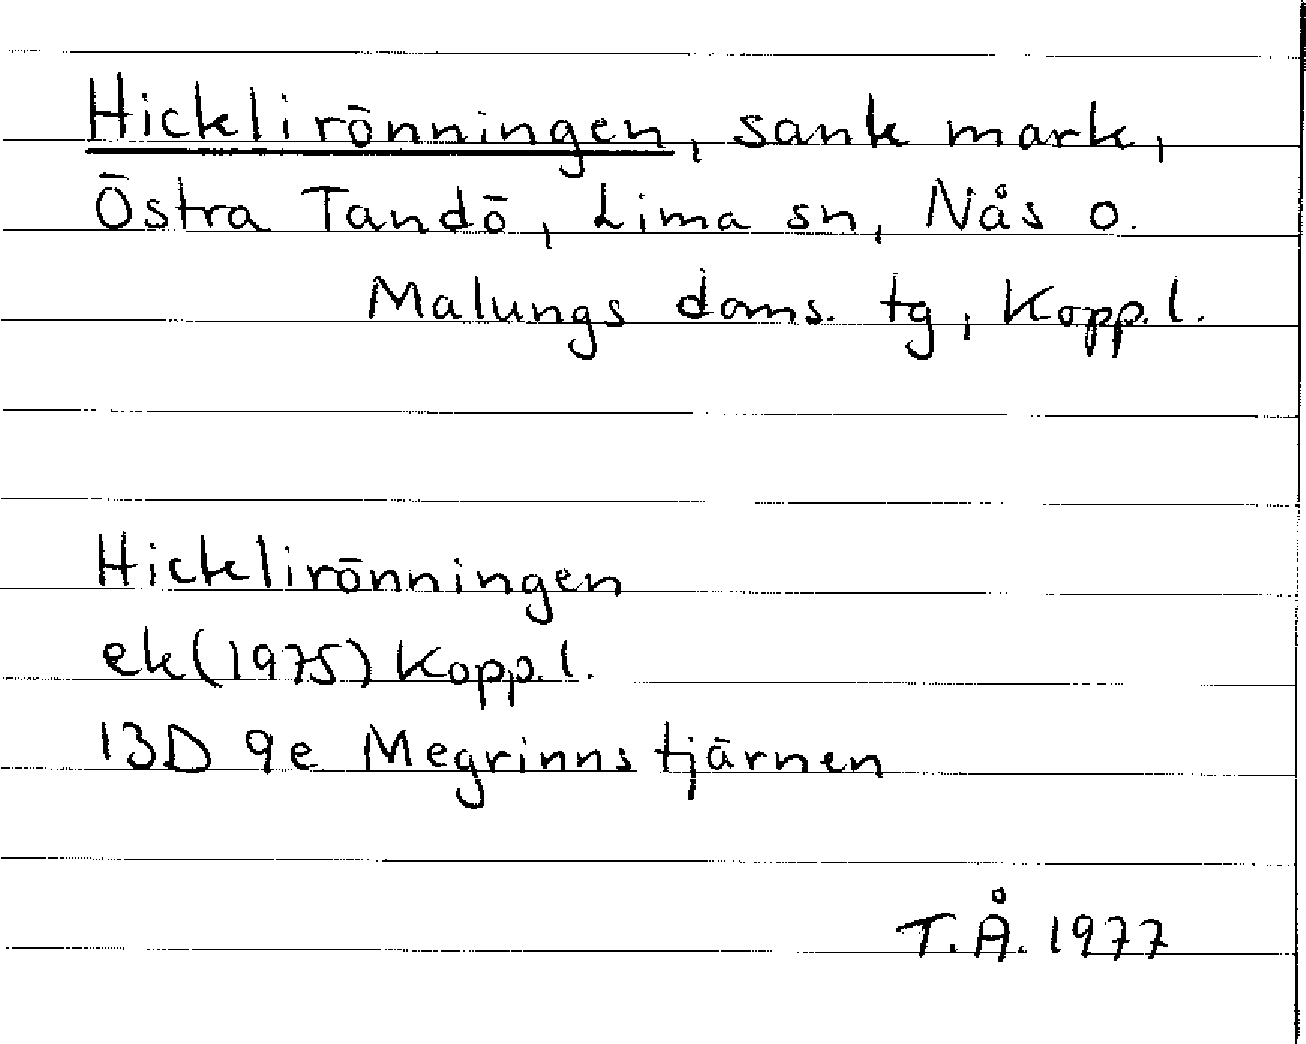 Hicklirönningen, sank mark,
Östra Tandö, Lima sn, Nås o.
Malungs doms. tg, Kopp.l.
Hicklirönningen
ek(1975) Kopp.l.
13D 9e Megrinnstjärnen
T.Å. 1977